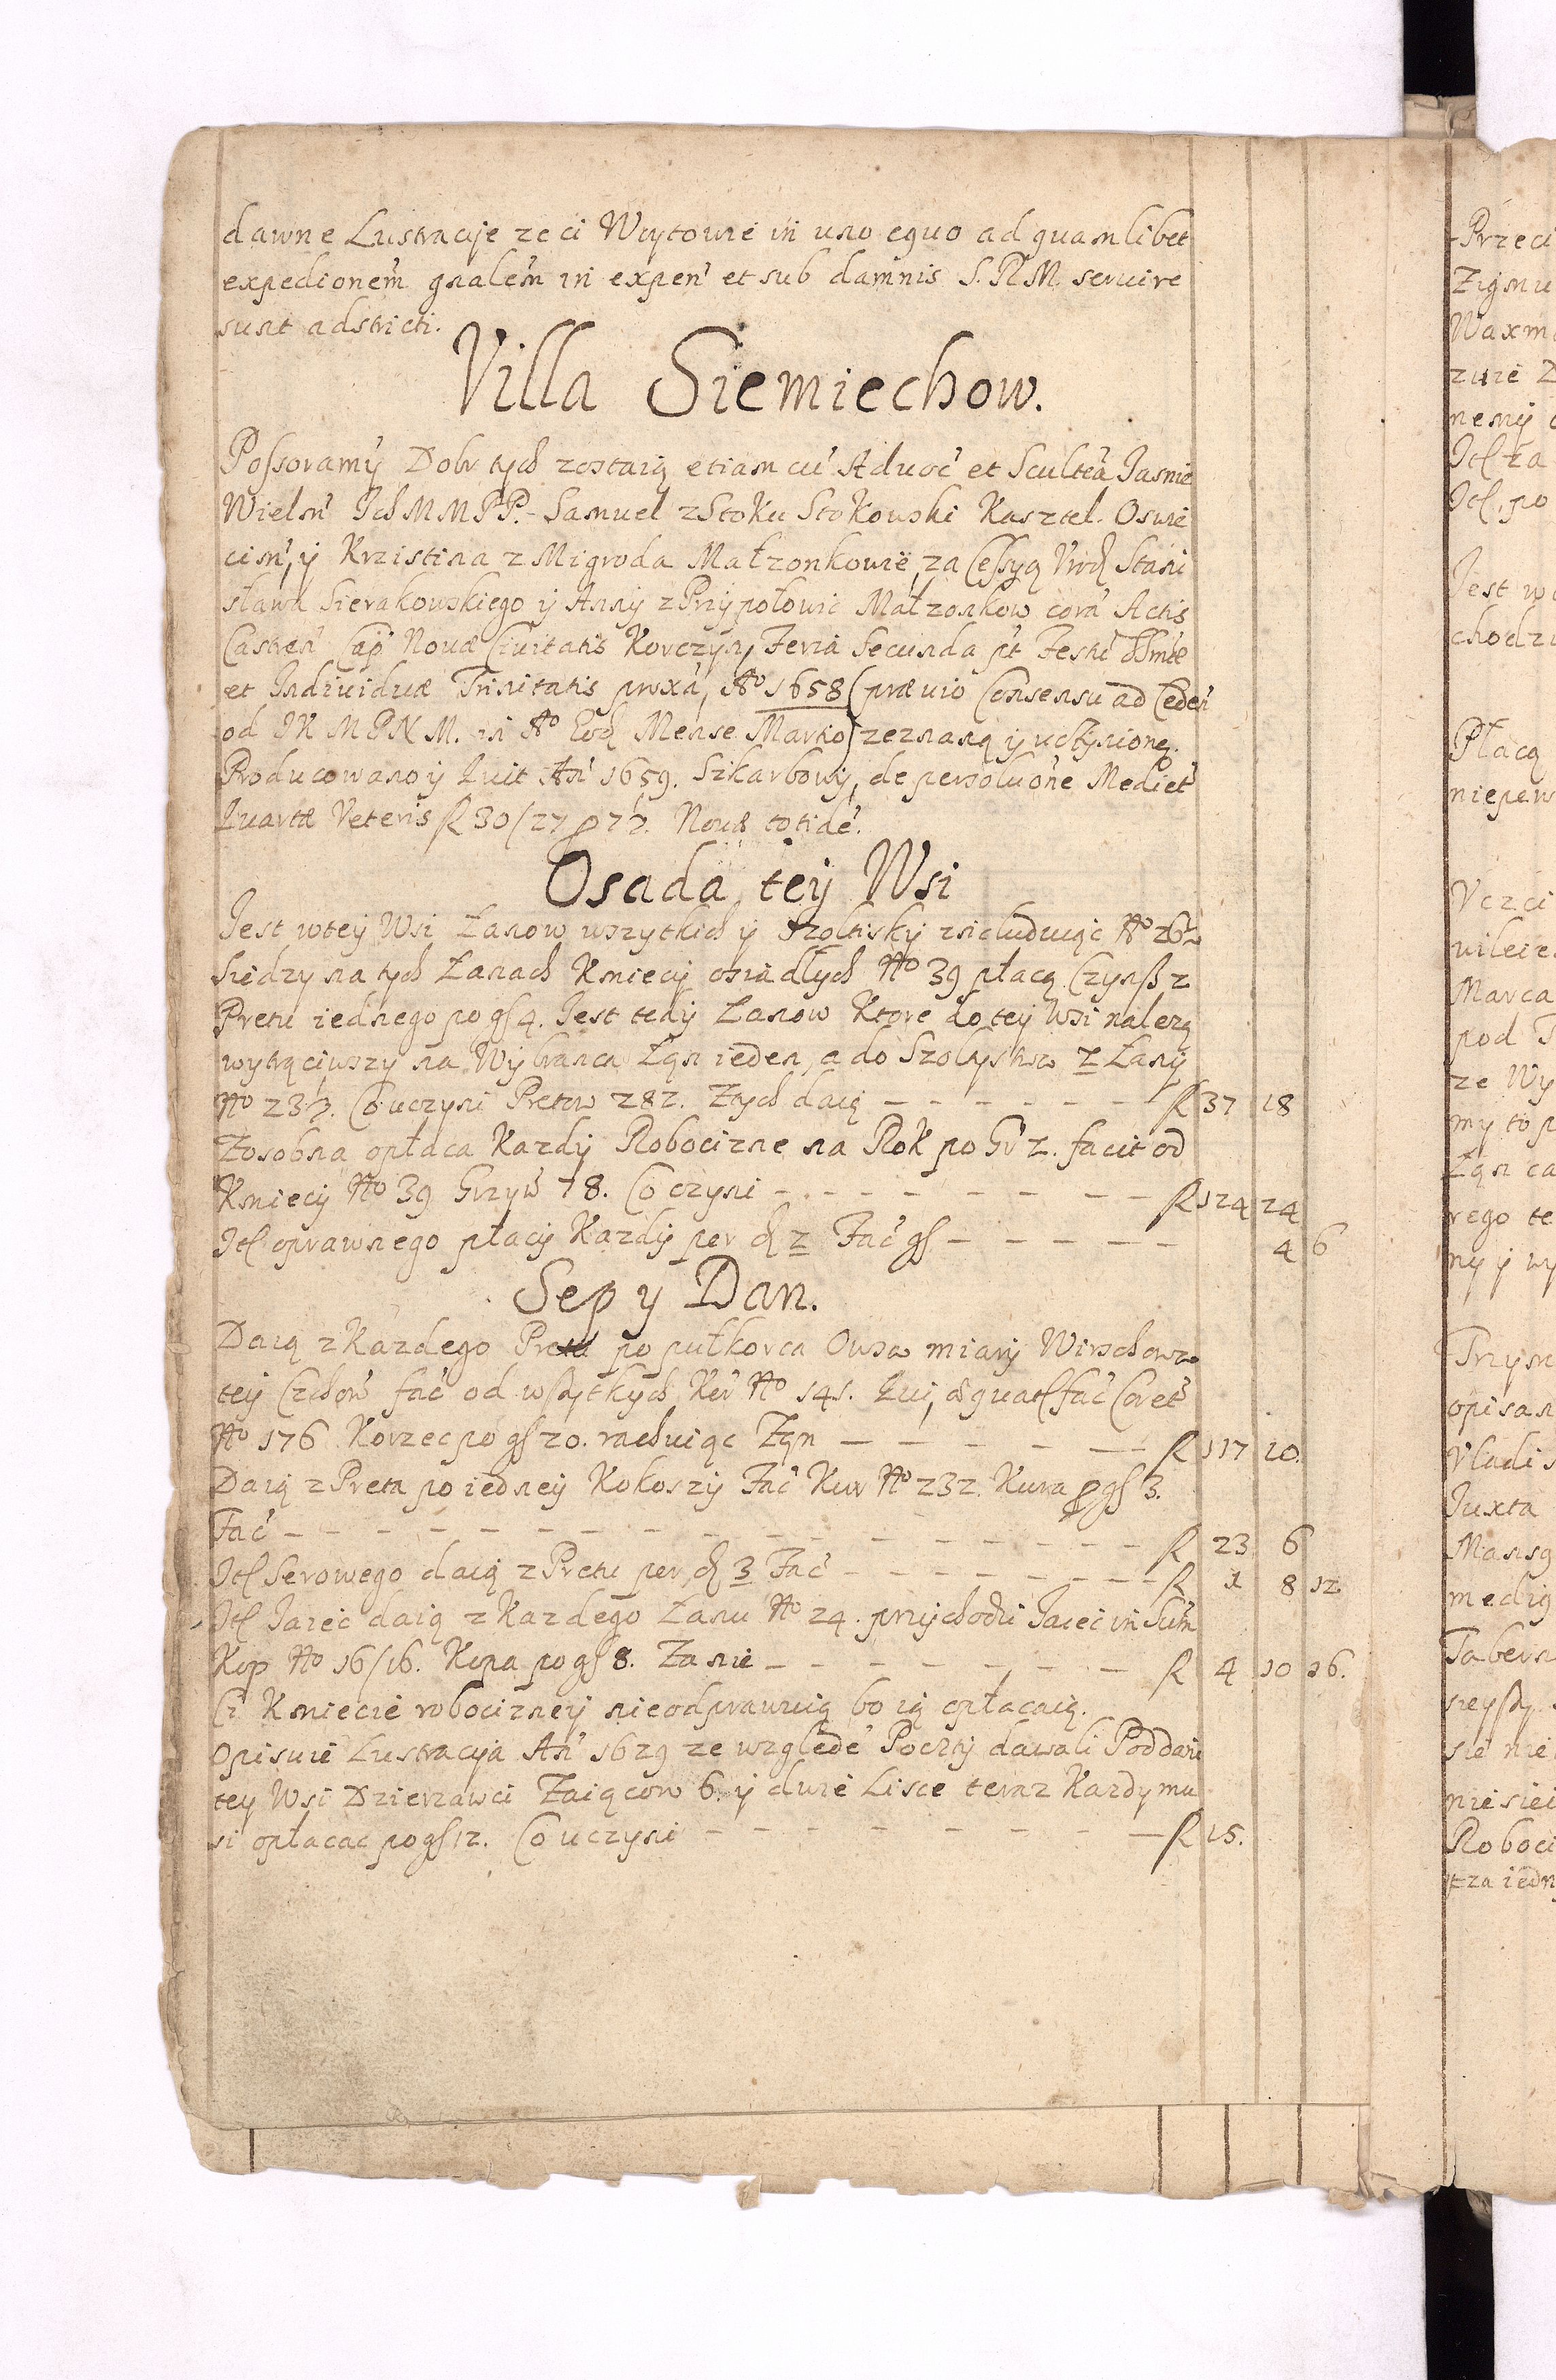 dawne Lustracyje ze ci Woytowie in uno equo ad quamlibet
expedionem gnalem in expen et sub damnis S. R M. seruire
sunt adstricti.
Villa Siemiechow.
Possoramy Dobr tych zostaią etiam cu Aduoc et Scultea Jasnie
Wielm Ich M M P P. Samuel z Stoku Stokowski Kasztel. Oswie
cim, y Krzistina z Migroda Małzonkowie, za Cessyą Stani
sława Sierakowskiego y Anny z Przypołowic Małzonkow cora Actis
Castren Cap Nouæ Ciuitatis Korczyn, Feria Secunda pt Festu
et Indiuiduæ Trinitatis proxa, Ao 1658 (præuio Consensu ad Ceden
od IK M P N M. in Ao Mense Martio) zeznaną y uczynioną.
Producowano y Quit An 1659. Szkarbowy, de persolutione Mediet
Quartæ Veteris 30/27 Nouæ totide.
Osada tey Wsi
Jest w tey Wsi Łanow wszytkich y Szoltisky Ao 26½
Siedzy na tych Łanach Kmiecy osiadłych No 39 płacą Czynsz z
Pretu iednego po gſ 4. Jest tedy Łanow Ktore do tey Wsi nalezą
wytrąciwszy na Wybranca Łąn ieden, a do Szoltystwa 2 Łany
No 23½. Co uczyni Pretow 282. Z tych daią — — — — — — — 37 18
Zosobna opłaca Kazdy Robocizne na Rok po Gr 2. facit od
Kmiecy No 39 Grzyw 78. Co czyni — — — — — — — — 124 24
Itl oprawnego płacy Kazdy per 2 Fac gſ — — — — — 4 6
Sep y Dan.
Daią z Kazdego Pretu po pułkorca Owsa miary Wirzchowa
tey Czchow fac od wszytkych Kor No 141. Qui, fac Coret
No 176 Korzec po gſ 20. rachuiąc Ząn — — — — — — 117 20.
Daią z Preta po iedney Kokoszy Fac Kur No 232. Kura gſ 3.
Fac — — — — — — — — — — — — — — — — 23 6
Itl Serowego daią z Pretu per 3 Fac — — — — — — — — 1 8 12
Itl Jaiec daią z Kazdego Łanu No 24. przychodzi Jaiec in Sum
Kop No 16/16. Kopa po gſ 8. Za nie — — — — — — — 4 10 16.
Ci Kmiecie robocizney nieodprawuią bo ią opłacaią.
Opisuie Lustracyja An 1629 ze wzglede Poczty dawali Poddani
tey Wsi Dzierzawci Zaiącow 6. y dwie Lisce teraz Kazdy mu
si opłacac po gſ 12. Co uczyni — — — — — — — — — 15.
Przeci
Zigmu
nemy
Itl za
Itl. po
Jest w
chodzi
Płacą
niepew
Vczci
uileie
Marca
pod T
ze Wy
my to p
Łąn ca
rego te
ny y wy
Trzym
opisan
Vladis
Juxta
Mansg
medig
Tabern
sie nie
niesiei
Roboci
za iedn